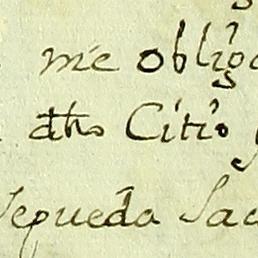 me obligo
dho Citio
Sepueda Sac